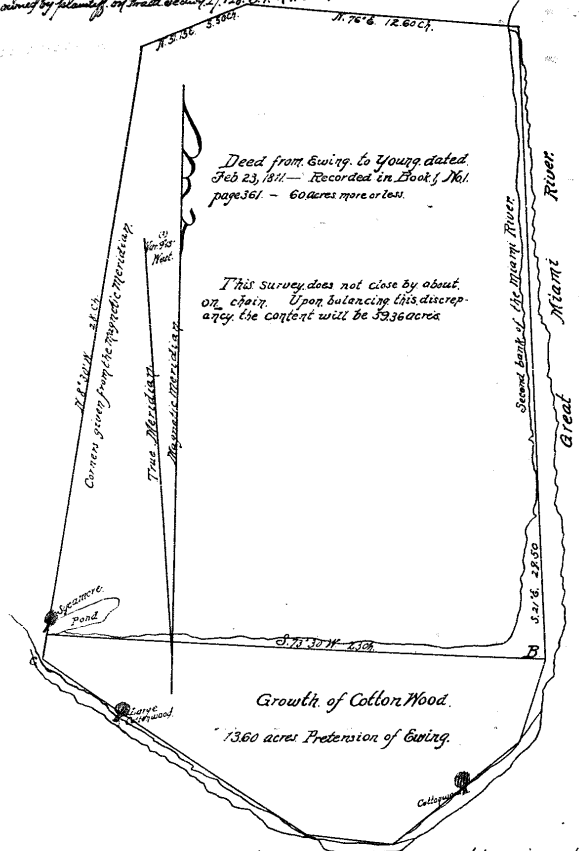 owned by plaintiff, on
N. 76° E. 12.60 Ch.
5.50 Ch.
Deed from Ewing to Young dated
Feb 23, 1811.— Recorded in Book 1, No. 1.
page 361. — 60 acres more or less.
West.
This survey does not close by about
on chain. Upon balancing this discrep-
ancy the content will be 59.36 acres
Corners given from the magnetic meridian.
True Meridian
Magnetic meridian
Second bank of the Miami River.
Great Miami River.
S. 21° E. 29.50
Sycamore.
Pond
S. 73° 30' W
B
Large
Cottonwood.
Growth of Cotton Wood.
13.60 acres Pretension of Ewing.
Cottonwood